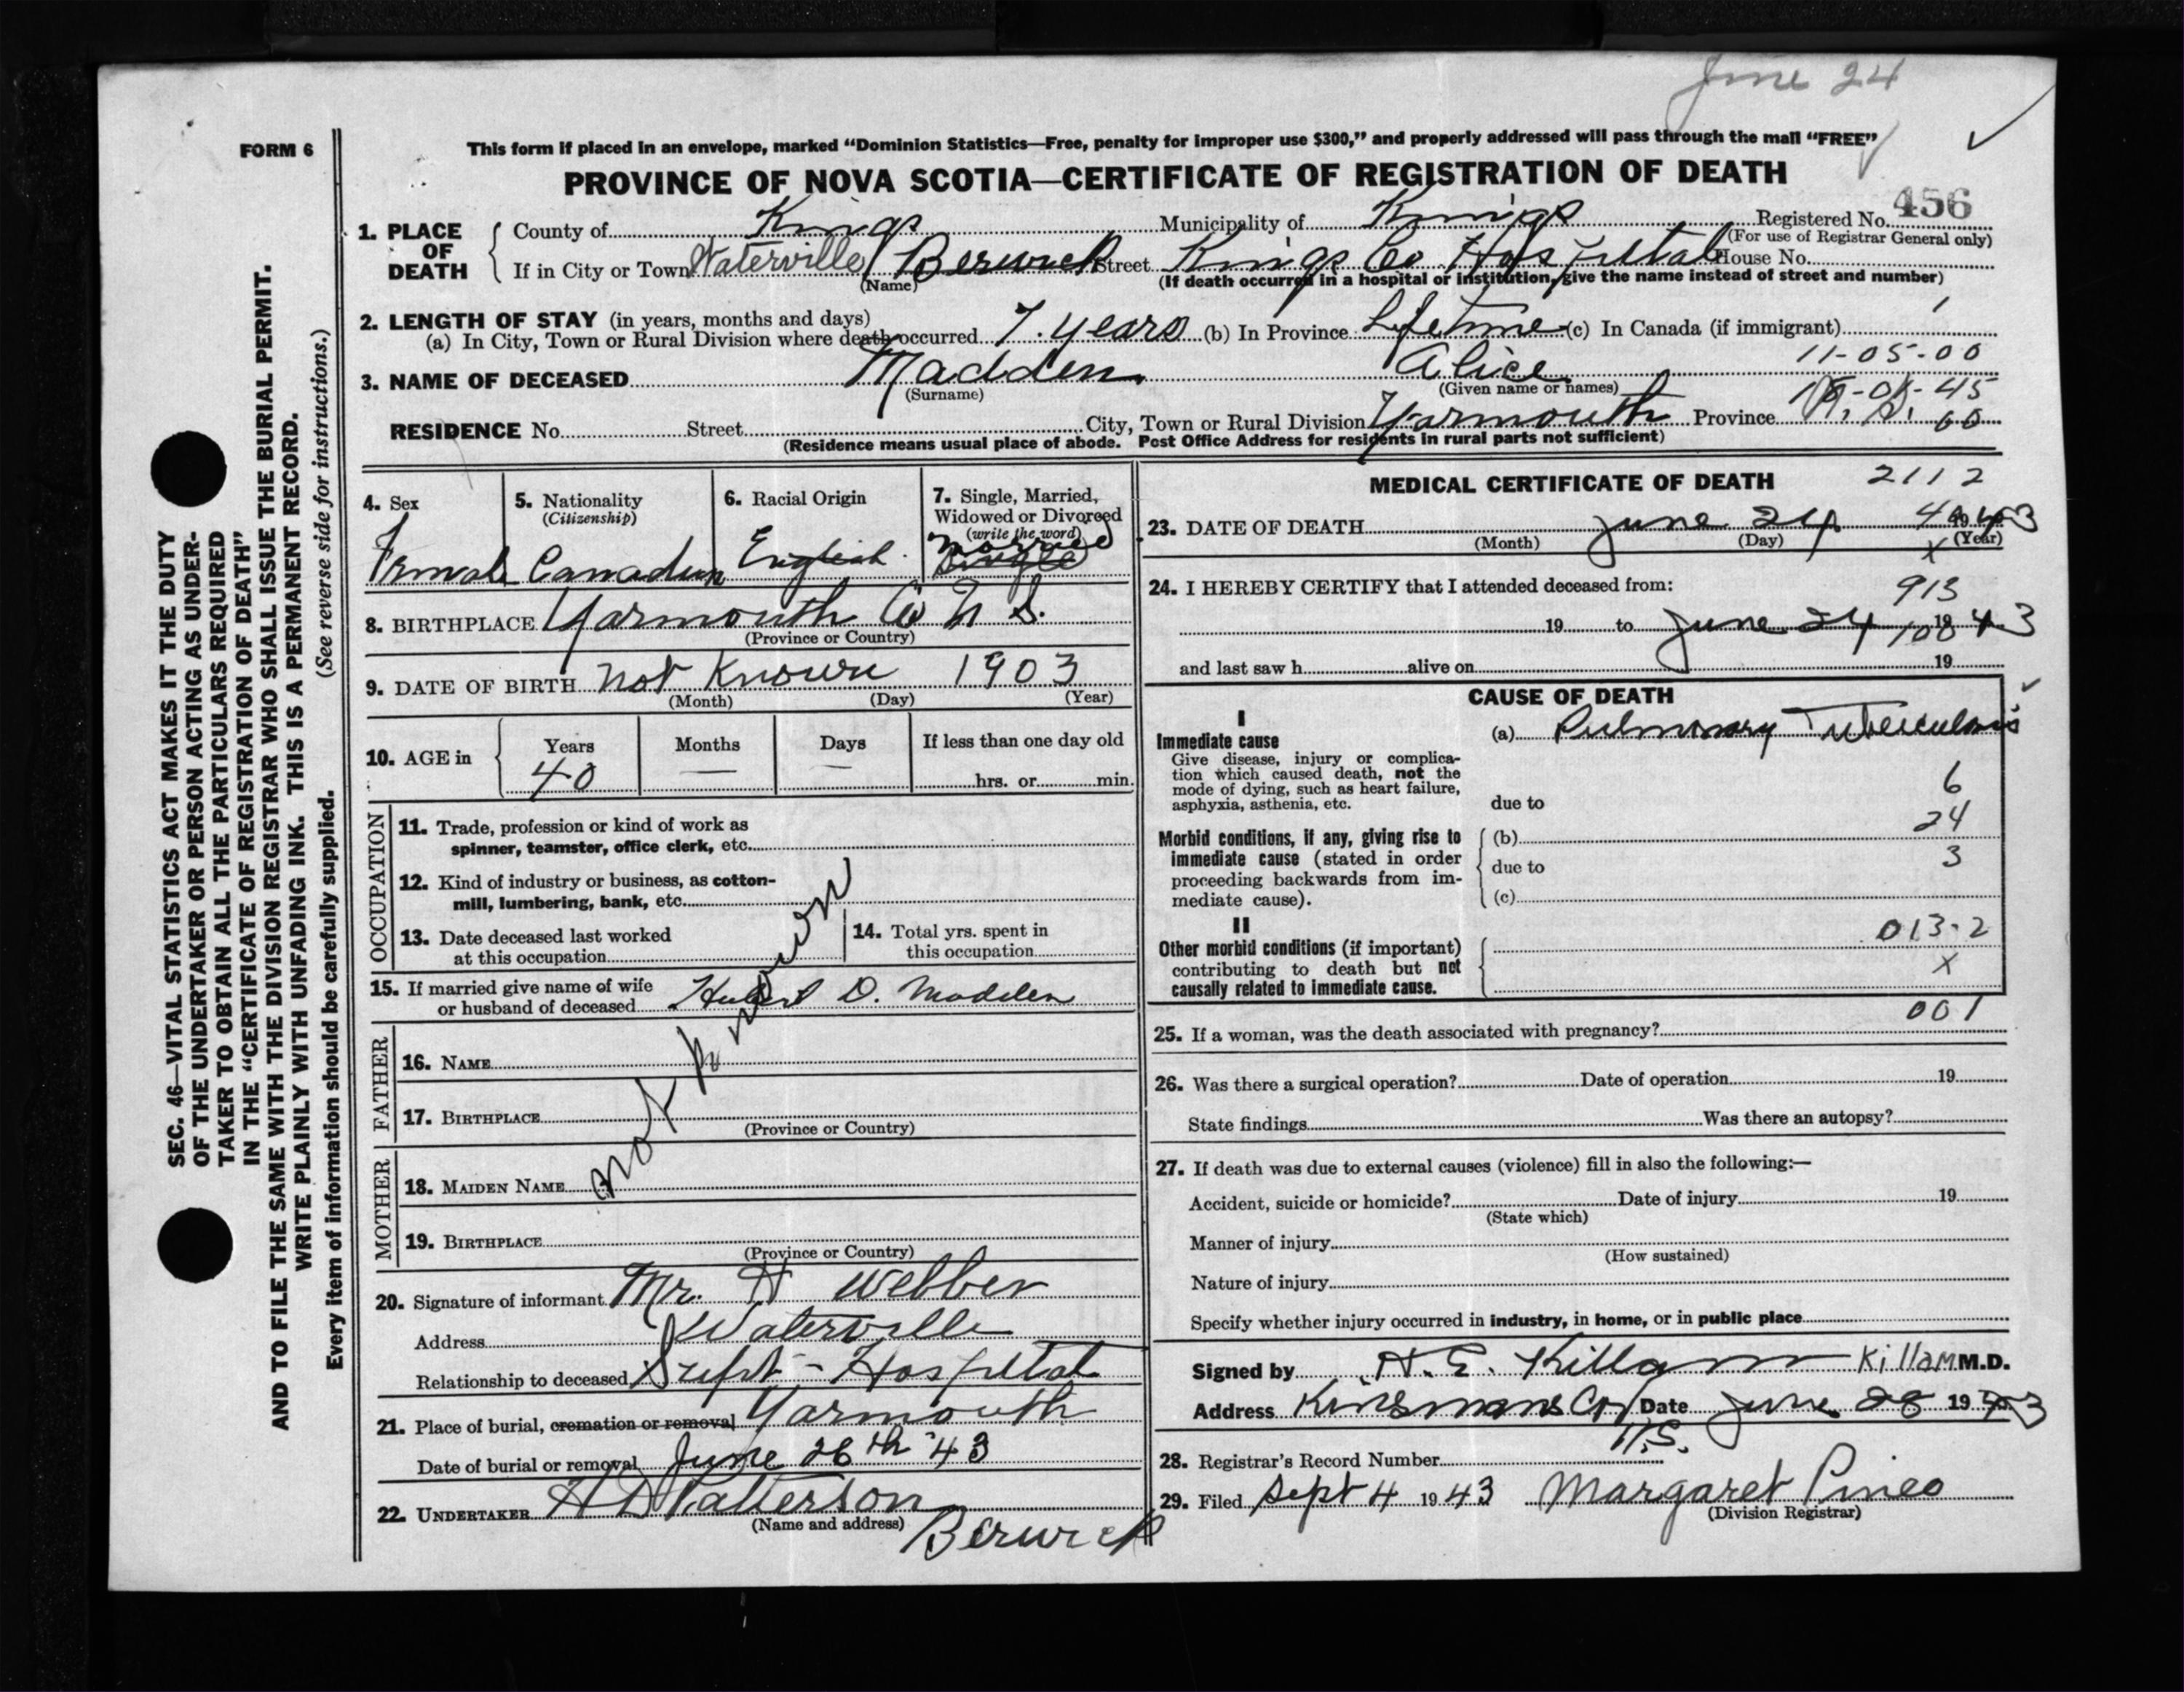 June 24
FORM 6
This form if placed in an envelope, marked “Dominion Statistics—Free, penalty for improper use $300,” and properly addressed will pass through the mail “FREE”
PROVINCE OF NOVA SCOTIA—CERTIFICATE OF REGISTRATION OF DEATH
456
1. PLACE OF DEATH
County of Kings Municipality of Kings Registered No.
(For use of Registrar General only)
If in City or Town Waterville Berwick Street Kings Co Hospital House No.
(Name) (If death occurred in a hospital or institution, give the name instead of street and number)
2. LENGTH OF STAY (in years, months and days)
(a) In City, Town or Rural Division where death occurred 7 years (b) In Province Lifetime (c) In Canada (if immigrant)
11-05-00
3. NAME OF DECEASED Madden Alice
(Surname) (Given name or names)
RESIDENCE No. Street City, Town or Rural Division Yarmouth Province N.S. 60
(Residence means usual place of abode. Post Office Address for residents in rural parts not sufficient)
4. Sex
Female
5. Nationality
(Citizenship)
Canadian
6. Racial Origin
English
7. Single, Married,
Widowed or Divorced
(write the word)
married
Single
8. BIRTHPLACE Yarmouth Co N S.
(Province or Country)
9. DATE OF BIRTH not Known 1903
(Month) (Day) (Year)
10. AGE in
Years Months Days If less than one day old
40 — — hrs. or min.
OCCUPATION
11. Trade, profession or kind of work as
spinner, teamster, office clerk, etc.
12. Kind of industry or business, as cotton-
mill, lumbering, bank, etc.
13. Date deceased last worked
at this occupation
14. Total yrs. spent in
this occupation
not known
15. If married give name of wife
or husband of deceased Hubert D. Madden
FATHER
16. NAME
17. BIRTHPLACE
(Province or Country)
MOTHER
18. MAIDEN NAME
19. BIRTHPLACE
(Province or Country)
20. Signature of informant Mr. H Webber
Address Waterville
Relationship to deceased Supt - Hospital
21. Place of burial, cremation or removal Yarmouth
Date of burial or removal June 26th '43
22. UNDERTAKER H D Patterson
(Name and address) Berwick
MEDICAL CERTIFICATE OF DEATH 2112
23. DATE OF DEATH June 24 43
(Month) (Day) (Year)
X
24. I HEREBY CERTIFY that I attended deceased from:
913
19 to June 24 1943
100
and last saw h alive on 19
CAUSE OF DEATH
I
Immediate cause
Give disease, injury or complica-
tion which caused death, not the
mode of dying, such as heart failure,
asphyxia, asthenia, etc.
(a) Pulmonary Tuberculosis
6
due to
24
Morbid conditions, if any, giving rise to
immediate cause (stated in order
proceeding backwards from im-
mediate cause).
(b)
due to 3
(c)
II
Other morbid conditions (if important)
contributing to death but not
causally related to immediate cause.
013-2
X
001
25. If a woman, was the death associated with pregnancy?
26. Was there a surgical operation? Date of operation 19
State findings Was there an autopsy?
27. If death was due to external causes (violence) fill in also the following:—
Accident, suicide or homicide? Date of injury 19
(State which)
Manner of injury
(How sustained)
Nature of injury
Specify whether injury occurred in industry, in home, or in public place
Signed by H. E. Killam Killam M.D.
Address Kinsmans Cor Date June 28 1943
N.S.
28. Registrar's Record Number
29. Filed Sept 4 1943 Margaret Pineo
(Division Registrar)
SEC. 46—VITAL STATISTICS ACT MAKES IT THE DUTY
OF THE UNDERTAKER OR PERSON ACTING AS UNDER-
TAKER TO OBTAIN ALL THE PARTICULARS REQUIRED
IN THE “CERTIFICATE OF REGISTRATION OF DEATH”
AND TO FILE THE SAME WITH THE DIVISION REGISTRAR WHO SHALL ISSUE THE BURIAL PERMIT.
WRITE PLAINLY WITH UNFADING INK. THIS IS A PERMANENT RECORD.
Every item of information should be carefully supplied. (See reverse side for instructions.)